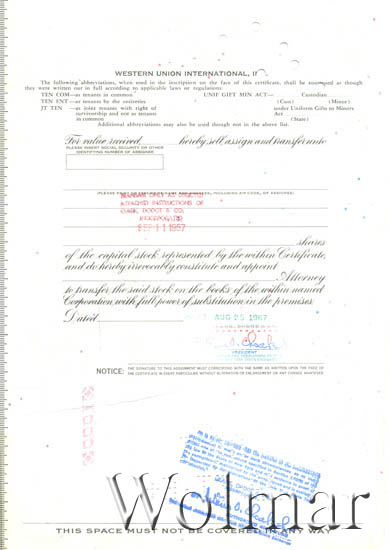 WESTERN UNION INTERNATIONAL, I
The following abbreviations, when used in the inscription on the face of this certificate, shall be construed as though
they were written out in full according to applicable laws or regulations:
TEN COM—as tenants in common UNIF GIFT MIN ACT— Custodian
TEN ENT—as tenants by the entireties (Cust) (Minor)
JT TEN —as joint tenants with right of under Uniform Gifts to Minors
survivorship and not as tenants Act
in common (State)
Additional abbreviations may also be used though not in the above list.
For value received hereby sell, assign and transfer unto
PLEASE INSERT SOCIAL SECURITY OR OTHER
IDENTIFYING NUMBER OF ASSIGNEE
ATTACHED INSTRUCTIONS OF
CLARK, DODGE & CO.
INCORPORATED
SEP 11 1967
shares
of the capital stock represented by the within Certificate,
and do hereby irrevocably constitute and appoint
Attorney
to transfer the said stock on the books of the within named
Corporation with full power of substitution in the premises.
Dated
AUG 25 1967
PRESIDENT
NOTICE: THE SIGNATURE TO THIS ASSIGNMENT MUST CORRESPOND WITH THE NAME AS WRITTEN UPON THE FACE OF
THE CERTIFICATE IN EVERY PARTICULAR WITHOUT ALTERATION OR ENLARGEMENT OR ANY CHANGE WHATEVER
Wolmar
THIS SPACE MUST NOT BE COVERED IN ANY WAY